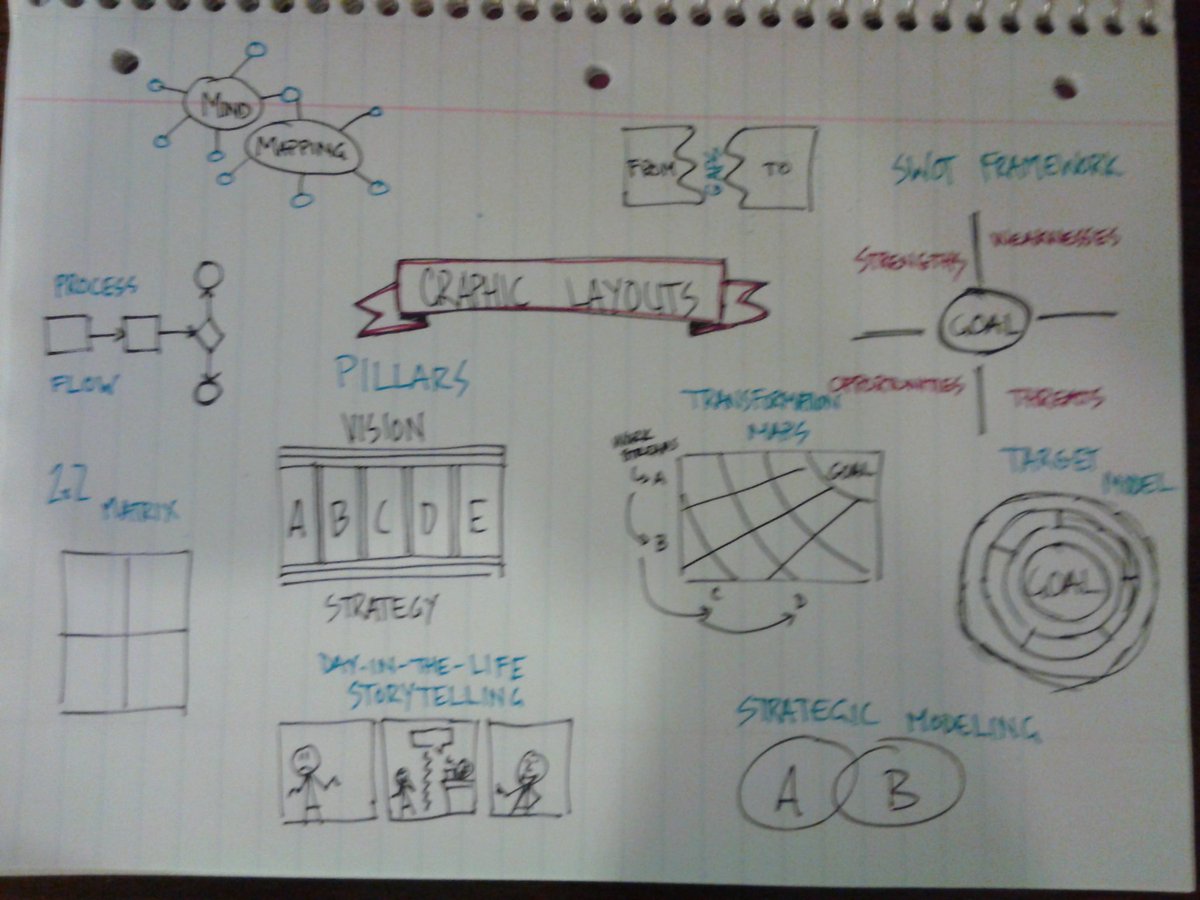 MIND
MAPPING
FROM
TO
SWOT FRAMEWORK
STRENGTHS
WEAKNESSES
GOAL
OPPORTUNITIES
THREATS
GRAPHIC LAYOUTS
PROCESS
FLOW
PILLARS
VISION
A B C D E
STRATEGY
TRANSFORMATION
MAPS
WORK
STREAMS
A
B
C
D
GOAL
TARGET
MODEL
GOAL
2x2
MATRIX
DAY-IN-THE-LIFE
STORYTELLING
STRATEGIC MODELING
A B